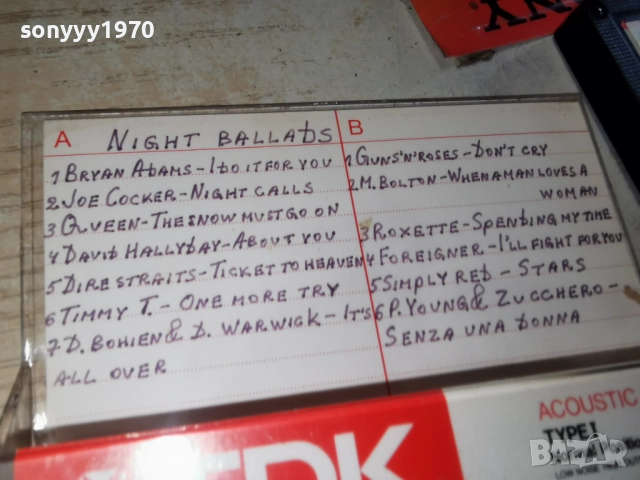 sonyyy1970
A NIGHT BALLADS
1 BRYAN ADAMS - I DO IT FOR YOU
2 JOE COCKER - NIGHT CALLS
3 QUEEN - THE SNOW MUST GO ON
4 DAVID HALLYDAY - ABOUT YOU
5 DIRE STRAITS - TICKET TO HEAVEN
6 TIMMY T. - ONE MORE TRY
7 D. BOHIEN & D. WARWICK - IT'S
ALL OVER
B
1 GUNS'N'ROSES - DON'T CRY
2 M. BOLTON - WHEN A MAN LOVES A
WOMAN
3 ROXETTE - SPENDING MY TIME
4 FOREIGNER - I'LL FIGHT FOR YOU
5 SIMPLY RED - STARS
6 P. YOUNG & ZUCCHERO -
SENZA UNA DONNA
TDK
ACOUSTIC
TYPE I
BAZAR